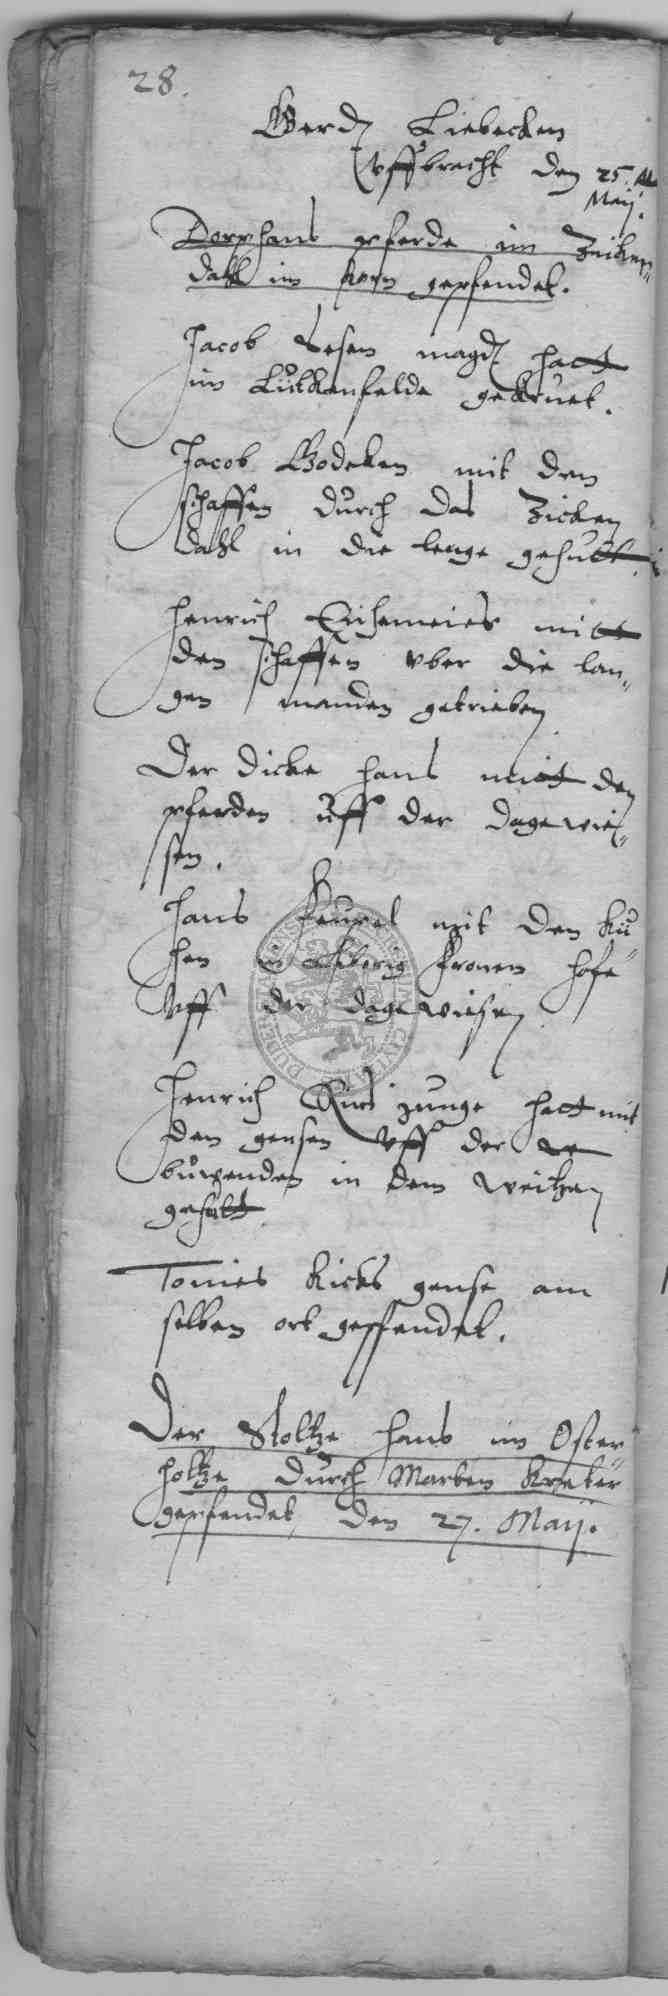 28.
Gerdt Liebecken
Uffbracht den 25.
Maij.
Dorphans pferde im Zicken„
dahl im korn gepfendet.
Jacob Lesen magdt hatt
im Lutkenfelde gekruet.
Jacob Bodeken mit den
schaffen durch das Zicken
dahl in die lenge gehutt.
Henrich Eichemeier mitt
den schaffen vber die lan„
gen manden getrieben
Der dicke Hans mitt den
pferden uff der dagewie„
sen.
Hans mit den Kü„
hen fronen hofe
Uff der dagewiesen
Henrich junge hatt mit
den gensen Uff der
in dem weitzen
gehutt
Tonies Ricks gense am
selben ort gepfendet.
Der Stoltze Hans im Oster„
holtze durch Marten
gepfendet, den 27. Maij.